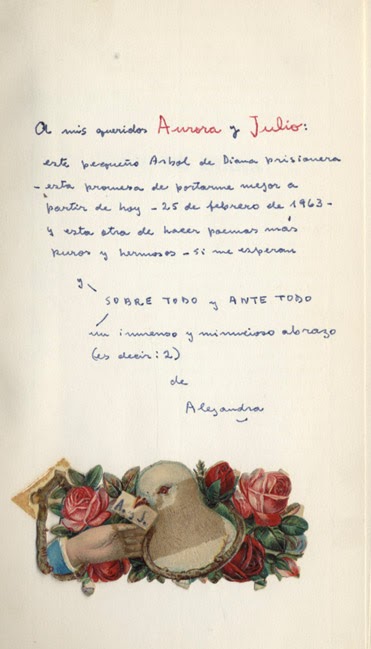 A mis queridos Aurora y Julio:
este pequeño Arbol de Diana prisionera
- esta promesa de portarme mejor a
partir de hoy - 25 de febrero de 1963 -
y esta otra de hacer poemas más
puros y hermosos - si me esperan
y
SOBRE TODO y ANTE TODO
un inmenso y minucioso abrazo
(es decir: 2)
de
Alejandra
A. J.